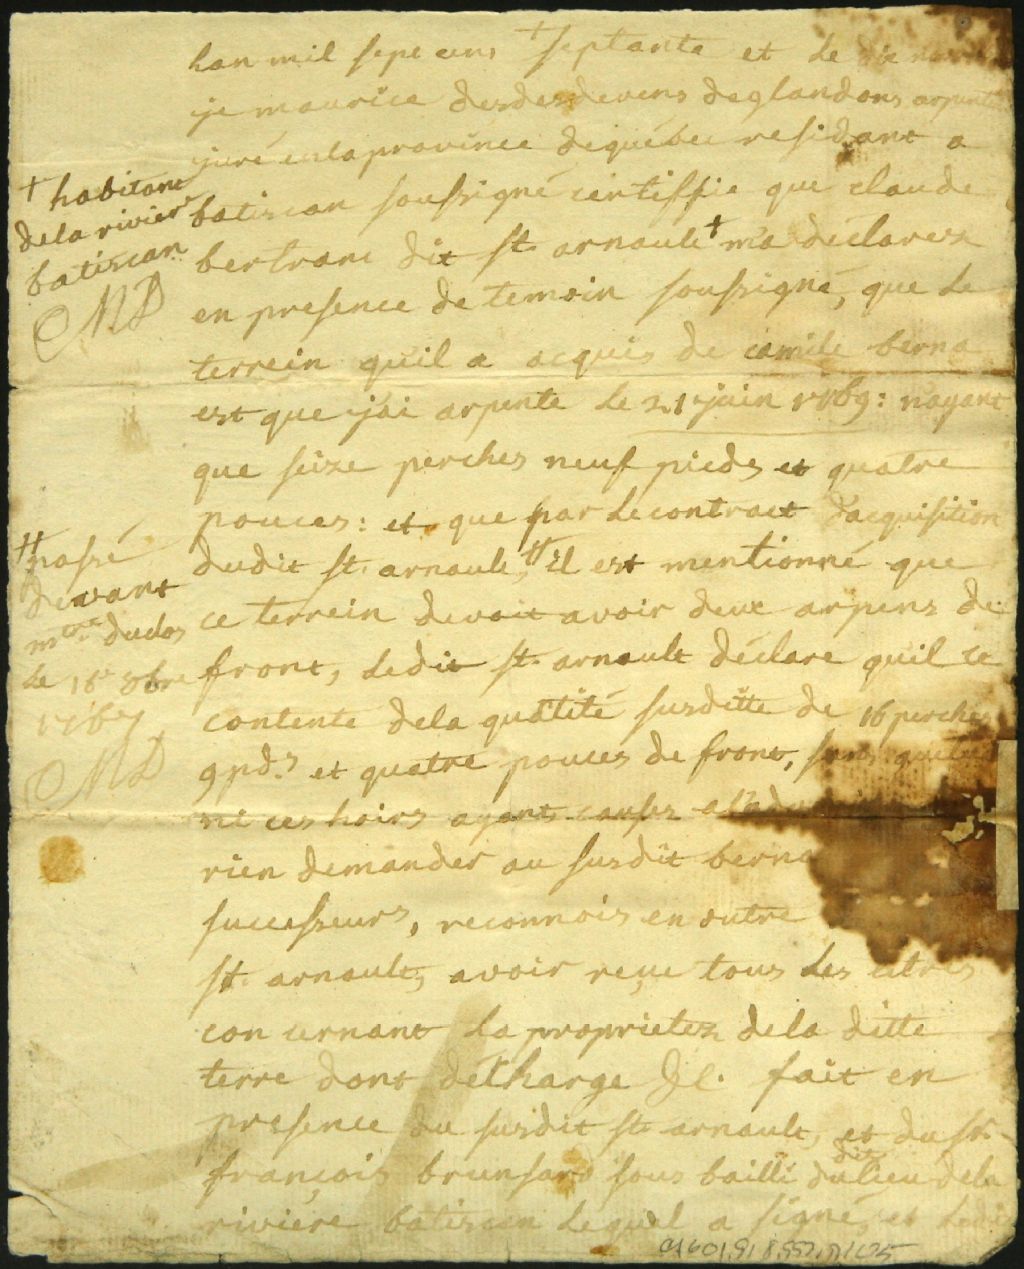 lan mil sept cens + septante et le dix
je maurice desdevens deglandons arpenteu
juré en la province de québec residant a
batiscan soussigné certiffie que claude
bertrant dit st. arnault + ma déclarez
en presence de temoin soussigné, que le
terrein qu'il a acquis de camile berna
est que j'ai arpenté le 21 juin 1769: n'ayant
que seize perches neuf pieds et quatre
pouces: et que par le contract d'acquisition
dudit st. arnault, ++ il est mentionné que
ce terrein devoit avoir deux arpens de
front, ledit st. arnault déclare quil ce
contente dela quátité susditte de 16 perches
9 pds. et quatre pouces de front, sans que
ni ces hoirs ayants causes
rien demander au susdit berna
successeurs, reconnois en outre
st. arnault, avoir reçue tous les titres
concernant la proprietez dela ditte
terre dont décharge &c. fait en
presence du susdit st arnault, et du sr.
françois brunsard sous bailli dudit lieu dela
riviere batiscan lequel a signé, et ledit
+ habitant
dela riviere
batiscan
MD
++ passé
devant
mtre. duclos
le 18e 8bre
1767
MD